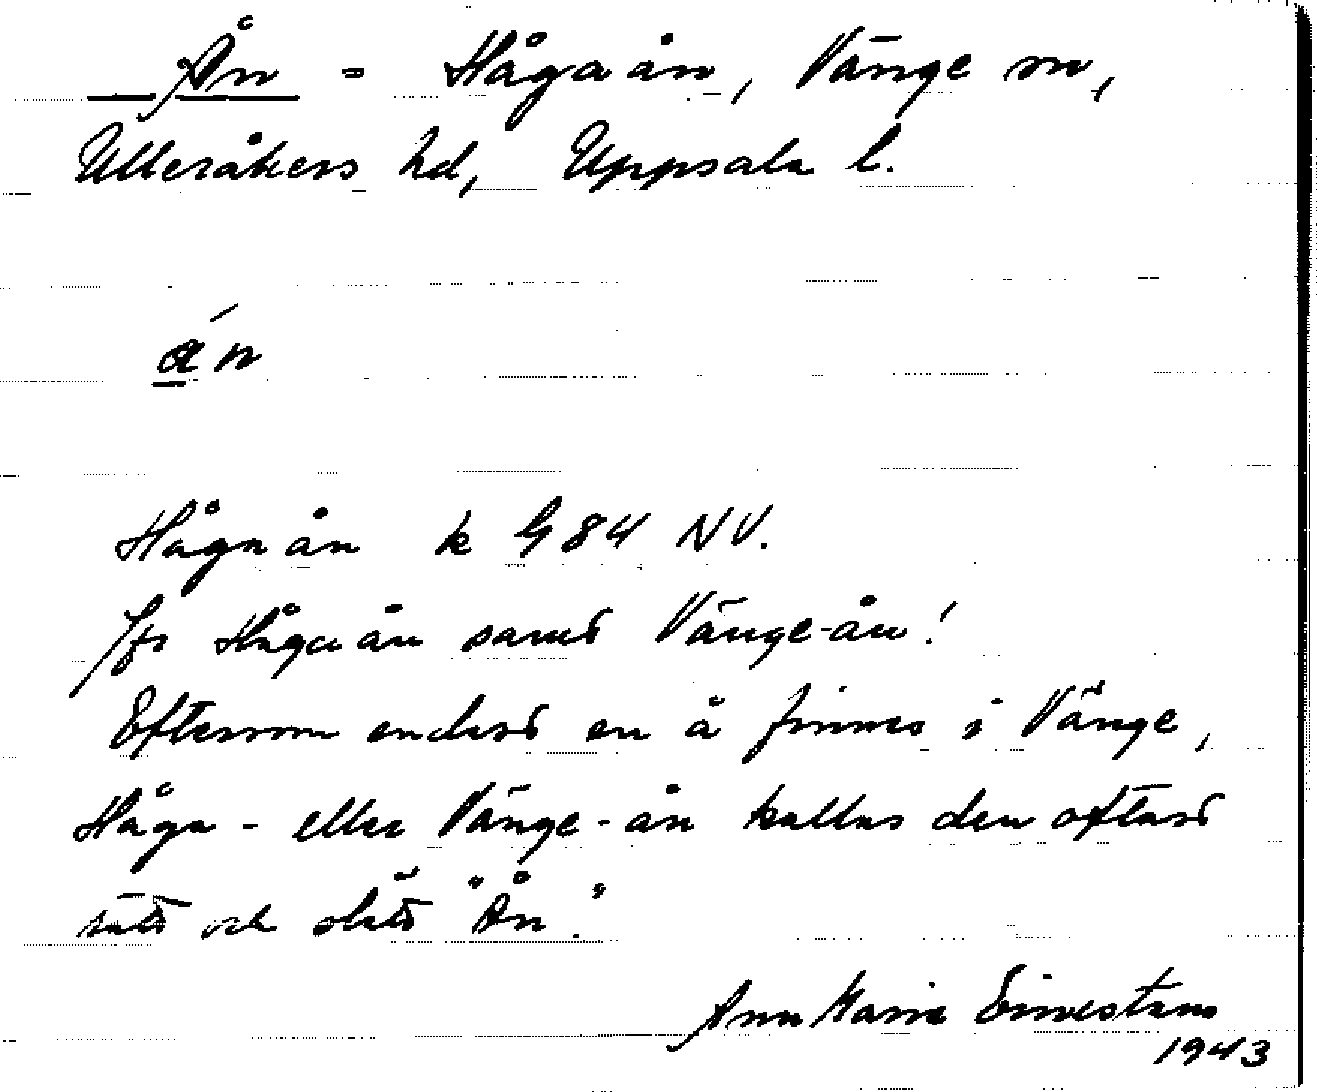 Ån = Hågaån, Vänge sn,
Ulleråkers hd, Uppsala l.
án
Hågaån k G 84 NV.
Jfr Hågaån samt Vänge-ån!
Eftersom endast en å finnes i Vänge,
Håga- eller Vänge-ån kallas den oftast
rätt och slätt "Ån".
Ann Marie
1943